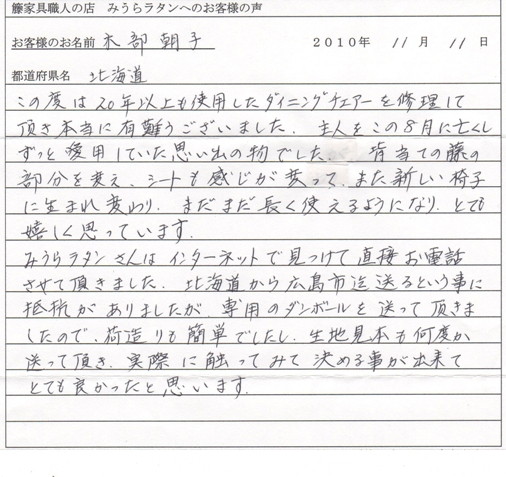 籐家具職人の店　みうらラタンへのお客様の声
お客様のお名前 木部朝子　２０１０年 11 月 11 日
都道府県名 北海道
この度は20年以上も使用したダイニングチェアーを修理して
頂き本当に有難うございました。主人をこの8月に亡くし
ずっと愛用していた思い出の物でした。背当ての藤の
部分を変え、シートも感じが変って、また新しい椅子
に生まれ変わり、まだまだ長く使えるようになり、とても
嬉しく思っています。
みうらラタンさんはインターネットで見つけて直接お電話
させて頂きました。北海道から広島市迄送るという事に
抵抗がありましたが、専用のダンボールを送って頂きま
したので、荷造りも簡単でしたし、生地見本も何度か
送って頂き、実際に触ってみて決める事が出来て
とても良かったと思います。